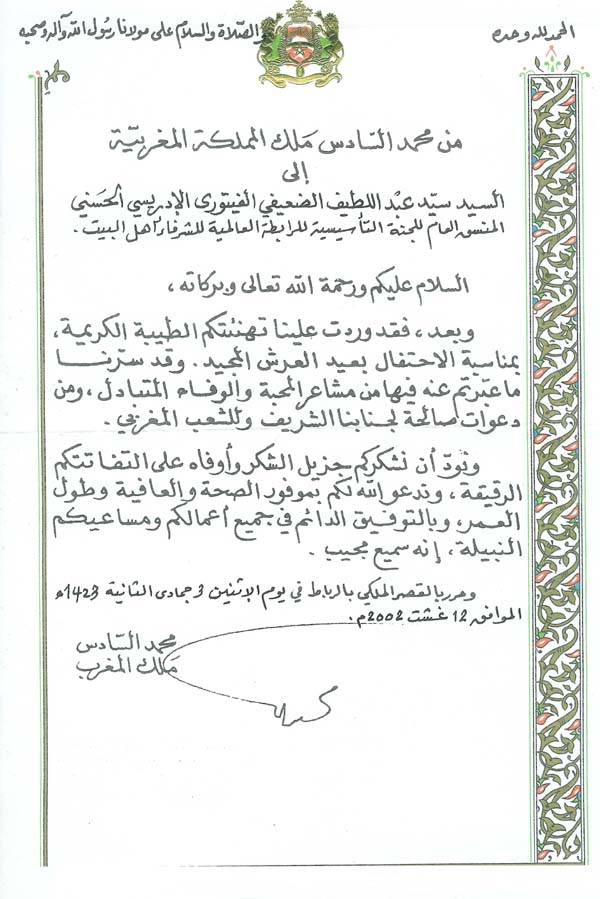 الحمد لله وحده
والصلاة والسلام على مولانا رسول الله وآله وصحبه
من محمد السادس ملك المملكة المغربية
إلى
السيد سيد عبد اللطيف الضعيفي الفيتوري الإدريسي الحسني
المنسق العام للجنة التأسيسية للرابطة العالمية للشرفاء آهل البيت .
السلام عليكم ورحمة الله تعالى وبركاته ،
وبعد ، فقد وردت علينا تهنئتكم الطيبة الكريمة ،
بمناسبة الاحتفال بعيد العرش المجيد . وقد سرّنا
ما عبّرتم عنه فيها من مشاعر المحبة والوفاء المتبادل ، ومن
دعوات صالحة لجنابنا الشريف وللشعب المغربي .
ونودّ أن نشكركم جزيل الشكر وأوفاه على التفاتتكم
الرقيقة ، وندعو الله لكم بموفور الصحة والعافية وطول
العمر ، وبالتوفيق الدائم في جميع أعمالكم ومساعيكم
النبيلة ، إنه سميع مجيب .
وحرر بالقصر الملكي بالرباط في يوم الاثنين 3 جمادى الثانية 1423ه
الموافق 12 غشت 2002م .
محمد السّادس
ملك المغرب